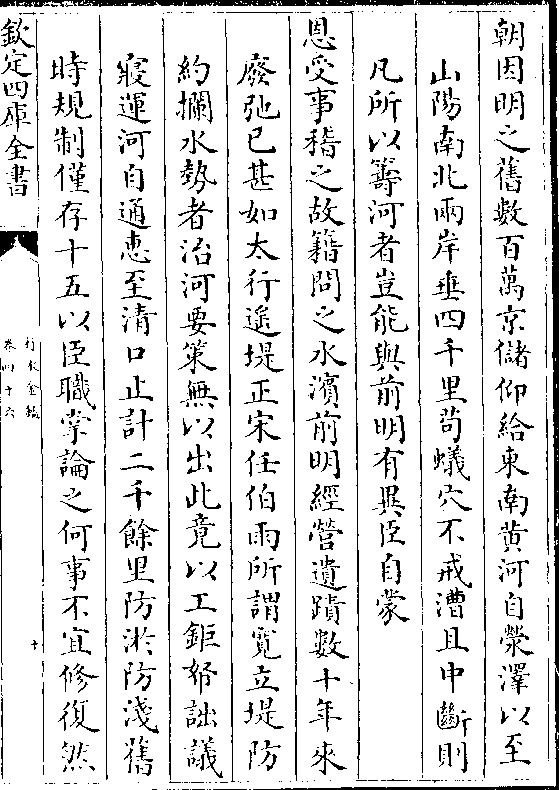 朝因明之舊數百萬京儲仰給東南黄河自滎澤以至
山陽南北兩岸垂四千里苟蟻穴不戒漕且中斷則
凡所以籌河者豈能與前明有異臣自蒙
恩受事稽之故籍問之水濱前明經營遺蹟數十年來
廢弛已甚如太行遥堤正宋任伯雨所謂寛立堤防
約攔水勢者治河要策無以出此竟以工鉅帑詘議
寢運河自通惠至清口止計二千餘里防淤防淺舊
時規制僅存十五以臣職掌論之何事不宜修復然
欽定四庫全書
行水金鑑
卷四十六
十